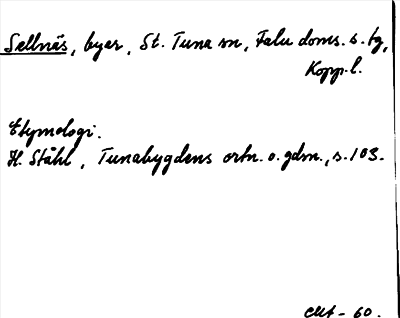 Sellnäs, byar, St. Tuna sn, Falu doms. s. tg,
Kopp. l.
Etymologi.
H. Ståhl, Tunabygdens ortn. o. gdm., s. 103.
- 60.